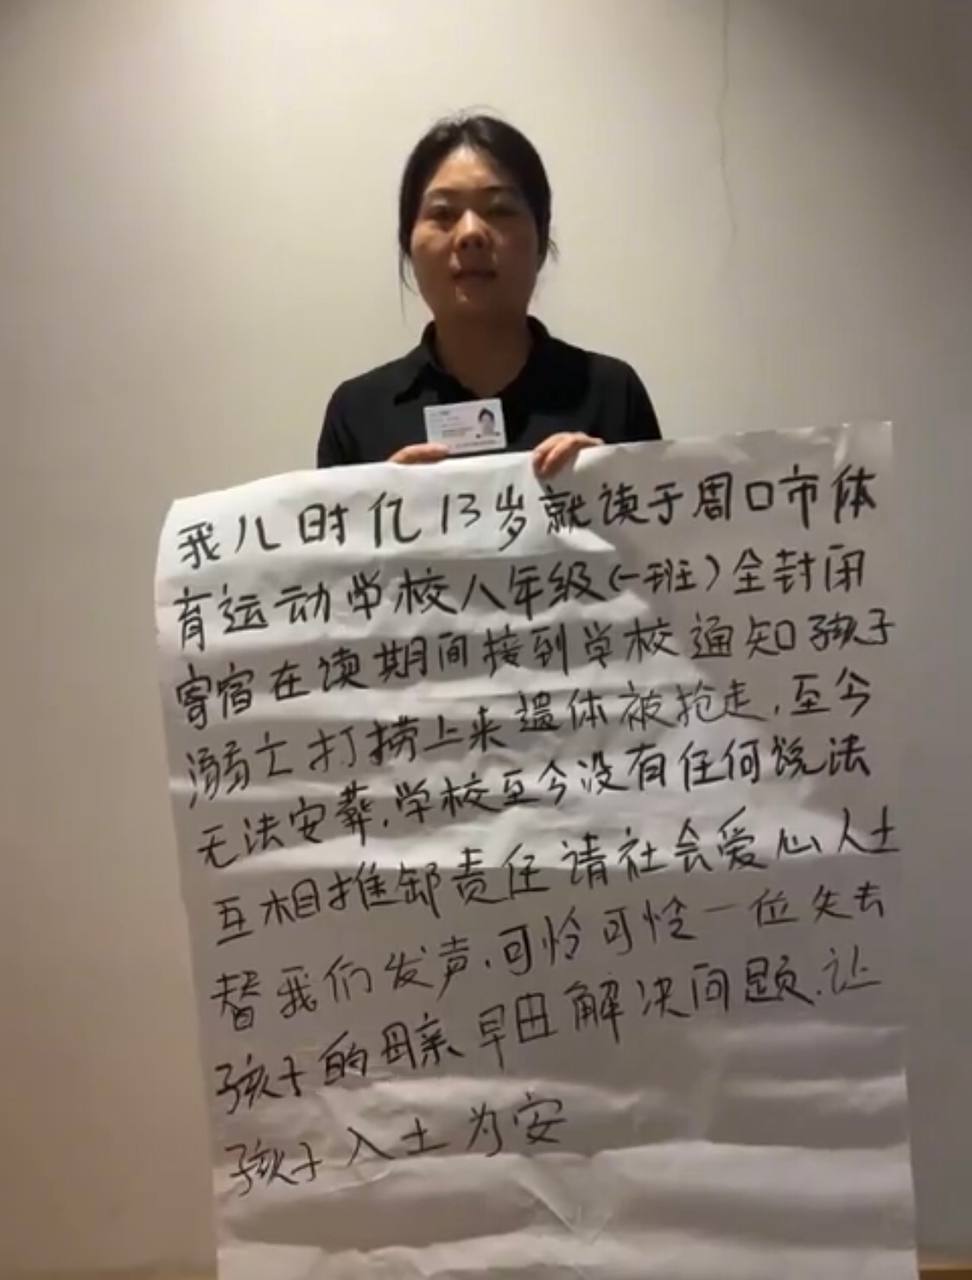 我儿时亿13岁就读于周口市体
育运动学校八年级(一班)全封闭
寄宿在读期间接到学校通知孩子
溺亡打捞上来遗体被抢走，至今
无法安葬，学校至今没有任何说法
互相推卸责任请社会爱心人士
替我们发声，可怜可怜一位失去
孩子的母亲早日解决问题，让
孩子入土为安